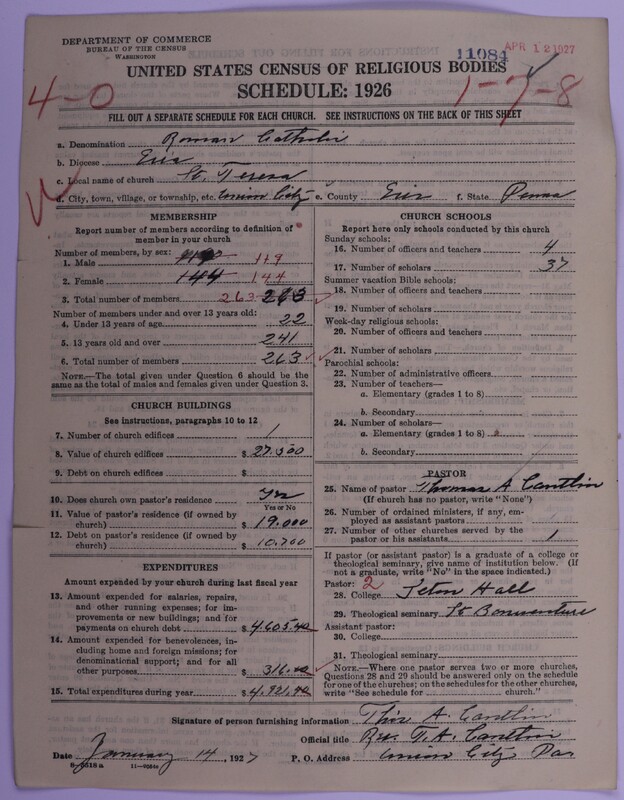 DEPARTMENT OF COMMERCE
BUREAU OF THE CENSUS
WASHINGTON
11084
APR 12 1927
UNITED STATES CENSUS OF RELIGIOUS BODIES
SCHEDULE: 1926
4-0
1-7-8
FILL OUT A SEPARATE SCHEDULE FOR EACH CHURCH. SEE INSTRUCTIONS ON THE BACK OF THIS SHEET
a. Denomination Roman Catholic
b. Diocese Erie
c. Local name of church St. Teresa
d. City, town, village, or township, etc. Union City e. County Erie f. State Penna
MEMBERSHIP
Report number of members according to definition of member in your church
Number of members, by sex:
1. Male 119
2. Female 144 144
3. Total number of members 263 263
Number of members under and over 13 years old:
4. Under 13 years of age 22
5. 13 years old and over 241
6. Total number of members 263
NOTE.—The total given under Question 6 should be the same as the total of males and females given under Question 3.
CHURCH BUILDINGS
See instructions, paragraphs 10 to 12
7. Number of church edifices 1
8. Value of church edifices $ 27.500
9. Debt on church edifices $
10. Does church own pastor's residence Yes
Yes or No
11. Value of pastor's residence (if owned by church) $ 19.000
12. Debt on pastor's residence (if owned by church) $ 10.700
EXPENDITURES
Amount expended by your church during last fiscal year
13. Amount expended for salaries, repairs, and other running expenses; for improvements or new buildings; and for payments on church debt $ 4.605.40
14. Amount expended for benevolences, including home and foreign missions; for denominational support; and for all other purposes $ 316.00
15. Total expenditures during year $ 4.921.40
CHURCH SCHOOLS
Report here only schools conducted by this church
Sunday schools:
16. Number of officers and teachers 4
17. Number of scholars 37
Summer vacation Bible schools:
18. Number of officers and teachers
19. Number of scholars
Week-day religious schools:
20. Number of officers and teachers
21. Number of scholars
Parochial schools:
22. Number of administrative officers
23. Number of teachers—
a. Elementary (grades 1 to 8)
b. Secondary
24. Number of scholars—
a. Elementary (grades 1 to 8)
b. Secondary
PASTOR
25. Name of pastor Thomas A Cantlin
(If church has no pastor, write "None")
26. Number of ordained ministers, if any, employed as assistant pastors
27. Number of other churches served by the pastor or his assistants 1
If pastor (or assistant pastor) is a graduate of a college or theological seminary, give name of institution below. (If not a graduate, write "No" in the space indicated.)
Pastor: 2
28. College Seton Hall
29. Theological seminary St Bonaventure
Assistant pastor:
30. College
31. Theological seminary
NOTE.—Where one pastor serves two or more churches, Questions 28 and 29 should be answered only on the schedule for one of the churches; on the schedules for the other churches, write "See schedule for church."
Signature of person furnishing information Thos A. Cantlin
Official title Rev. T. A. Cantlin
Date January 14, 1927 P. O. Address Union City Pa